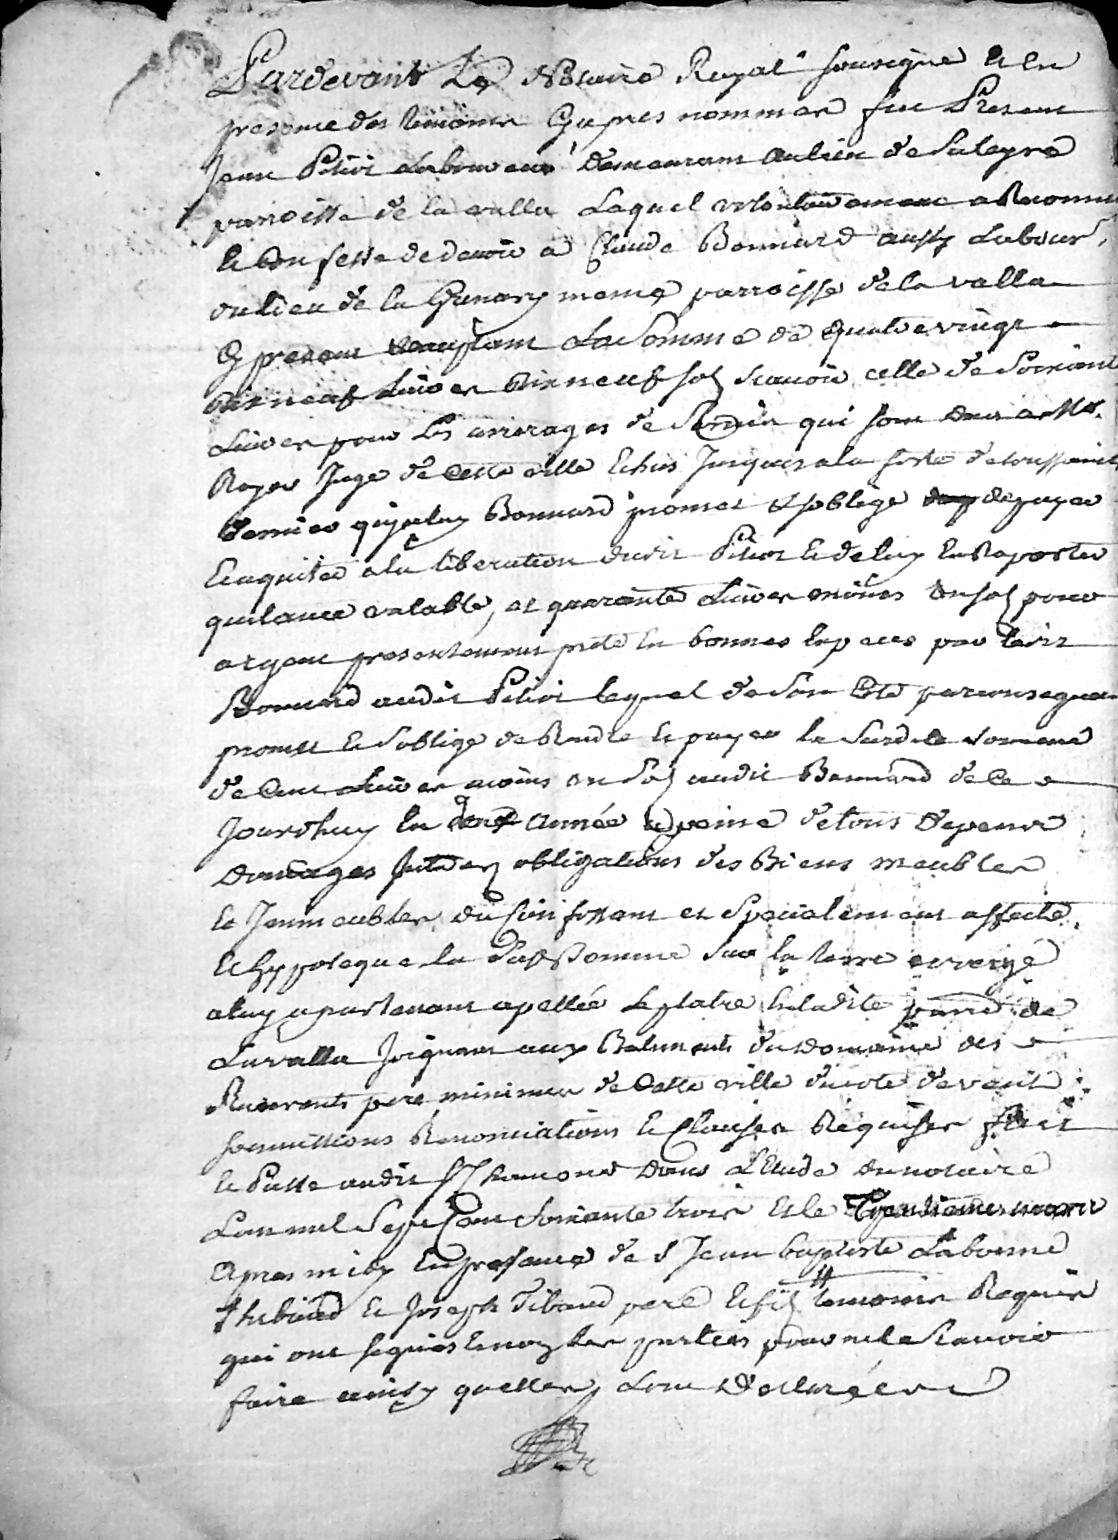 Pardevant Le Notaire Royal sousigné et en
presence des temoins Cy apres nommes fut Present
Jean Pitiot Laboureur demeurant au lieu de Saleyre
paroisse de la valla Lequel volontairement a Reconnu
et Confessé de devoir a Claude Bonnard aussy Labour.
du lieu de la même parroisse de la valla
Cy present acceptant La Somme de quatrevingt
dixneuf Livres dixneuf sols scavoir celle de Soixante
Livres pour les arrerages de qui sont deus a Mr.
Royer Juge de Cette ville Echus Jusques a la feste de toussaint
dernier qu'iceluy Bonnard promet et soblige de payer
Et aquiter a la liberation dudit Pitiot et de luy En Raporter
quitance valable, et quarante Livres moins un sol pour
argent presentement preté En bonnes Especes par ledit
Bonnard audit Pitiot lequel de Son Coté par consequent
promet et Soblige de Rendre et payer la Susdite Somme
de Cent Livres moins un Sol audit Bonnard de Ce
Jourdhuy En année a peine de tous depens
Domages obligations des Biens meubles
et Jmmeubles du Confessant et Specialement affecté
et hypoteque la Susd Somme Sur la terre
a luy apartenant apellée Leplatre En ladite parr de
Lavalla Joignant aux Batiments du Domaine des
Reverents pere minimes de Cette ville du coté de vent
soumissions Renonciations et Clauses Requises fait
et Passé audit St Chamond dans L'Etude du notaire
L'an mil Sept Cent Soixante trois et le
apres midy En presence de S Jean baptiste Laborne
thibaud et Joseph Tibaud pere et fils temoins Requis
qui ont signé et non les parties pour ne le Scavoir
faire ainsy quelles L'ont Declaré